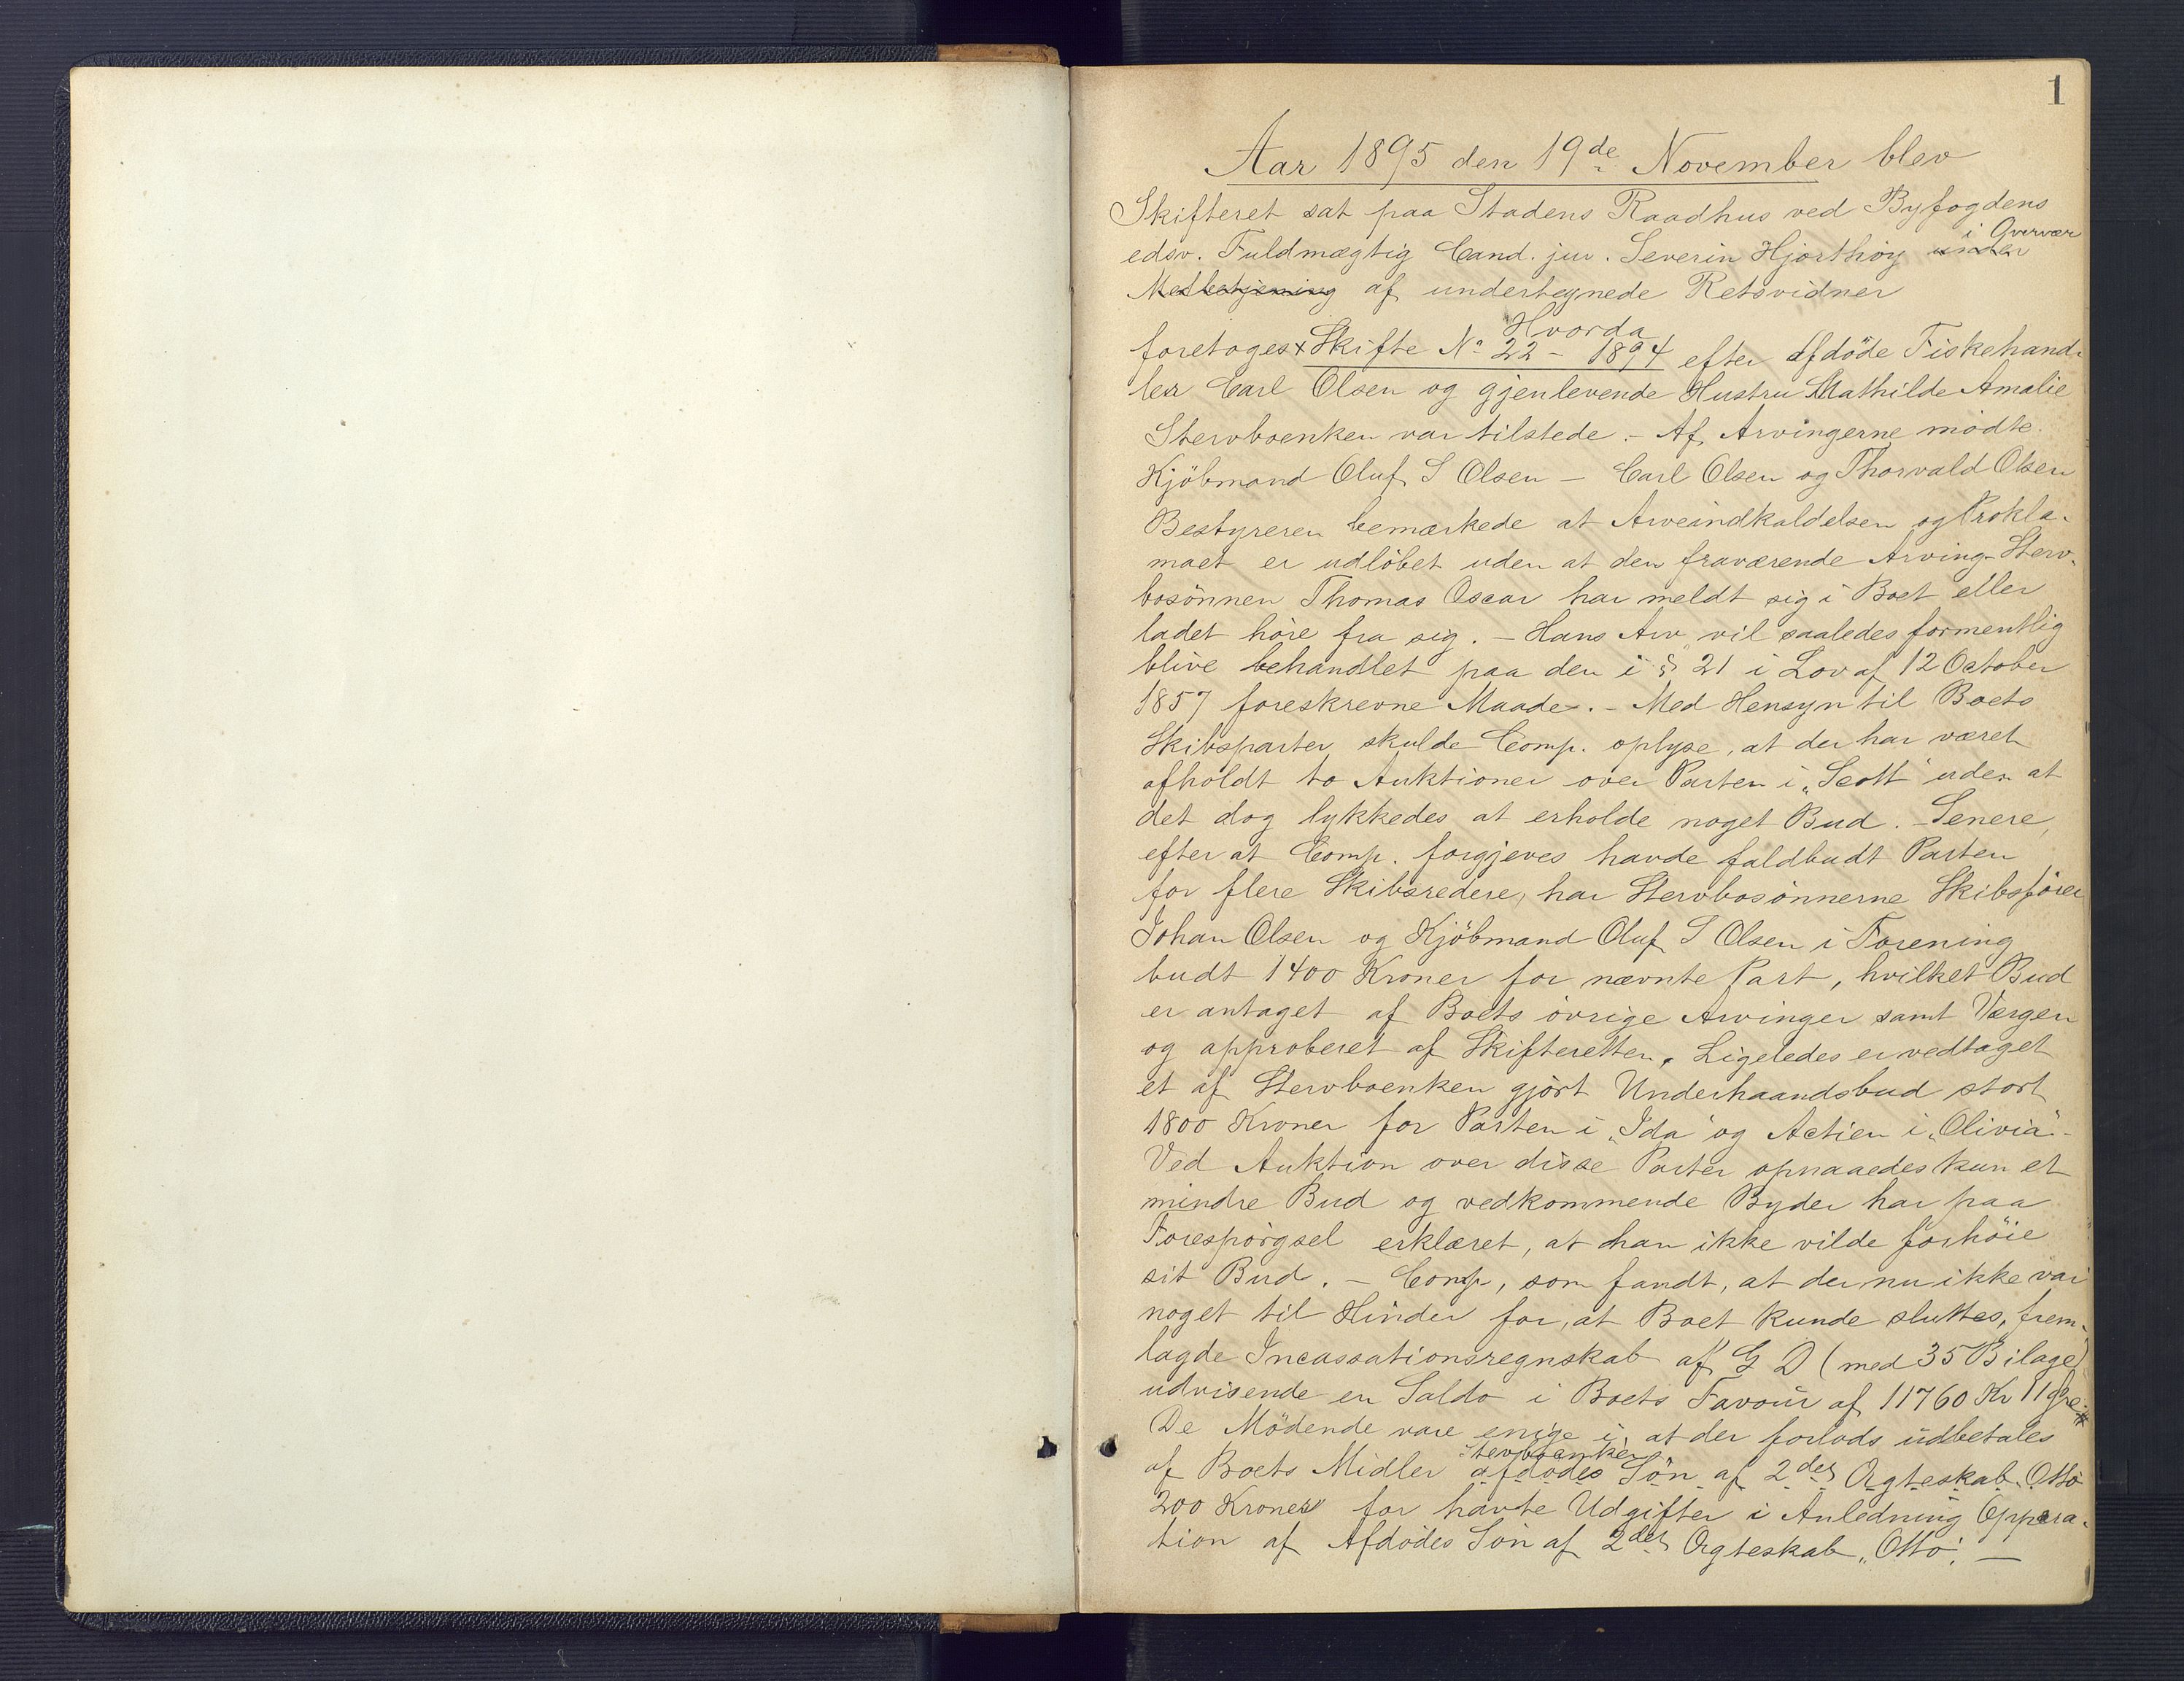 1
Aar 1895 den 19de November blev
Skifteret sat paa Stadens Raadhus ved Byfogdens
edsv. Fuldmægtig Cand. jur. Severin Hjorthöy under i Overvær
Medbetjening af undertegnede Retsvidner
Hvorda
foretoges x Skifte No 22 - 1894 efter afdöde Fiskehand-
ler Carl Olsen og gjenlevende Hustru Mathilde Amalie
Stervboenken var tilstede. - Af Arvingerne mödte
Kjöbmand Oluf S Olsen - Carl Olsen og Thorvald Olsen
Bestyreren bemærkede at Arveindkaldelsen og Prokla-
maet er udlöbet uden at den fraværende Arving - Sterv-
bosönnen Thomas Oscar har meldt sig i Boet eller
ladet höre fra sig. - Hans Arv vil saaledes formentlig
blive behandlet paa den i § 21 i Lov af 12 October
1857 foreskrevne Maade. - Med Hensyn til Boets
Skibsparter skulde Comp. oplyse, at der har været
afholdt to Auktioner over Parten i "Scott" uden at
det dog lykkedes at erholde noget Bud. - Senere,
efter at Comp. forgjeves havde faldbudt Parten
for flere Skibsredere, har Stervbosönnerne Skibsförer
Johan Olsen og Kjöbmand Oluf S Olsen i Forening
budt 1400 Kroner for nævnte Part, hvilket Bud
er antaget af Boets övrige Arvinger samt Værgen
og approberet af Skifteretten. Ligeledes er vedtaget
et af Stervboenken gjört Underhaandsbud stort
1800 Kroner for Parten i "Ida" og Actien i "Olivia" -
Ved Auktion over disse Parter opnaaedes kun et
mindre Bud og vedkommende Byder har paa
Forespörgsel erklæret, at han ikke vilde forhöie
sit Bud. - Comp, som fandt, at der nu ikke var
noget til Hinder for, at Boet kunde sluttes, frem-
lagde Incassationsregnskab af G D (med 35 Bilage)
udvisende en Saldo i Boets Favour af 11760 Kr 11 Öre
De Mödende vare enige i, at der forlods udbetales
Stervboenken
af Boets Midler afdödes Sön af 2det Ægteskab Otto
200 Kroner for havte Udgifter i Anledning Oppera-
tion af Afdödes Sön af 2det Ægteskab "Otto". -